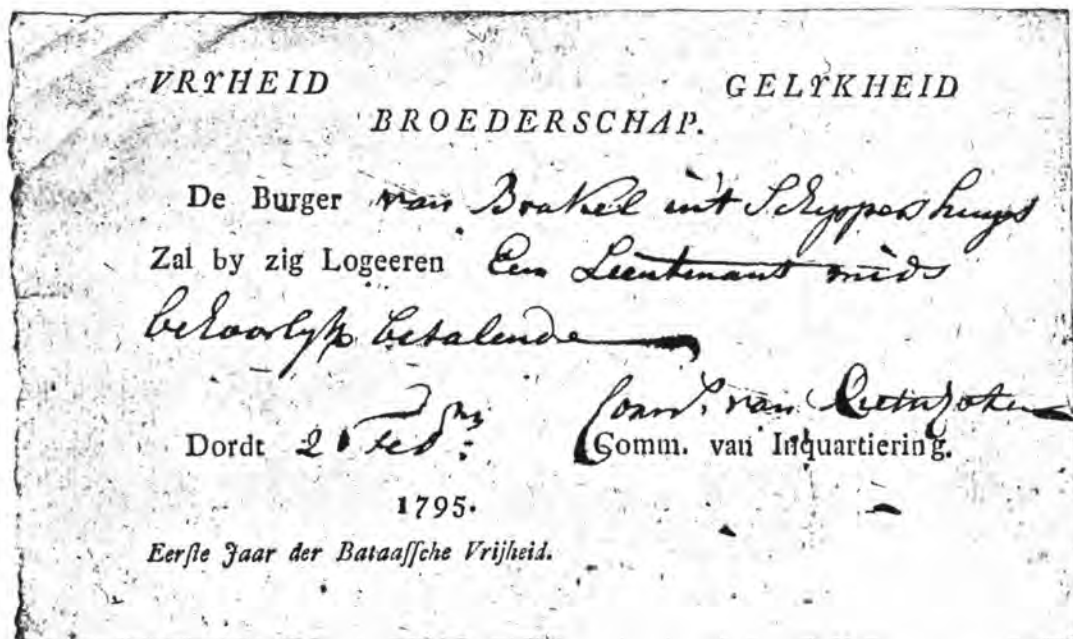 VRYHEID GELYKHEID
BROEDERSCHAP.
De Burger van Brakel int Schippers huys
Zal by zig Logeeren Een Lieutenant mids
behoorlyk betalende
Dordt 21 Feb
Coenr. van
Comm. van Inquartiering.
1795.
Eerſte Jaar der Bataaſſche Vrijheid.